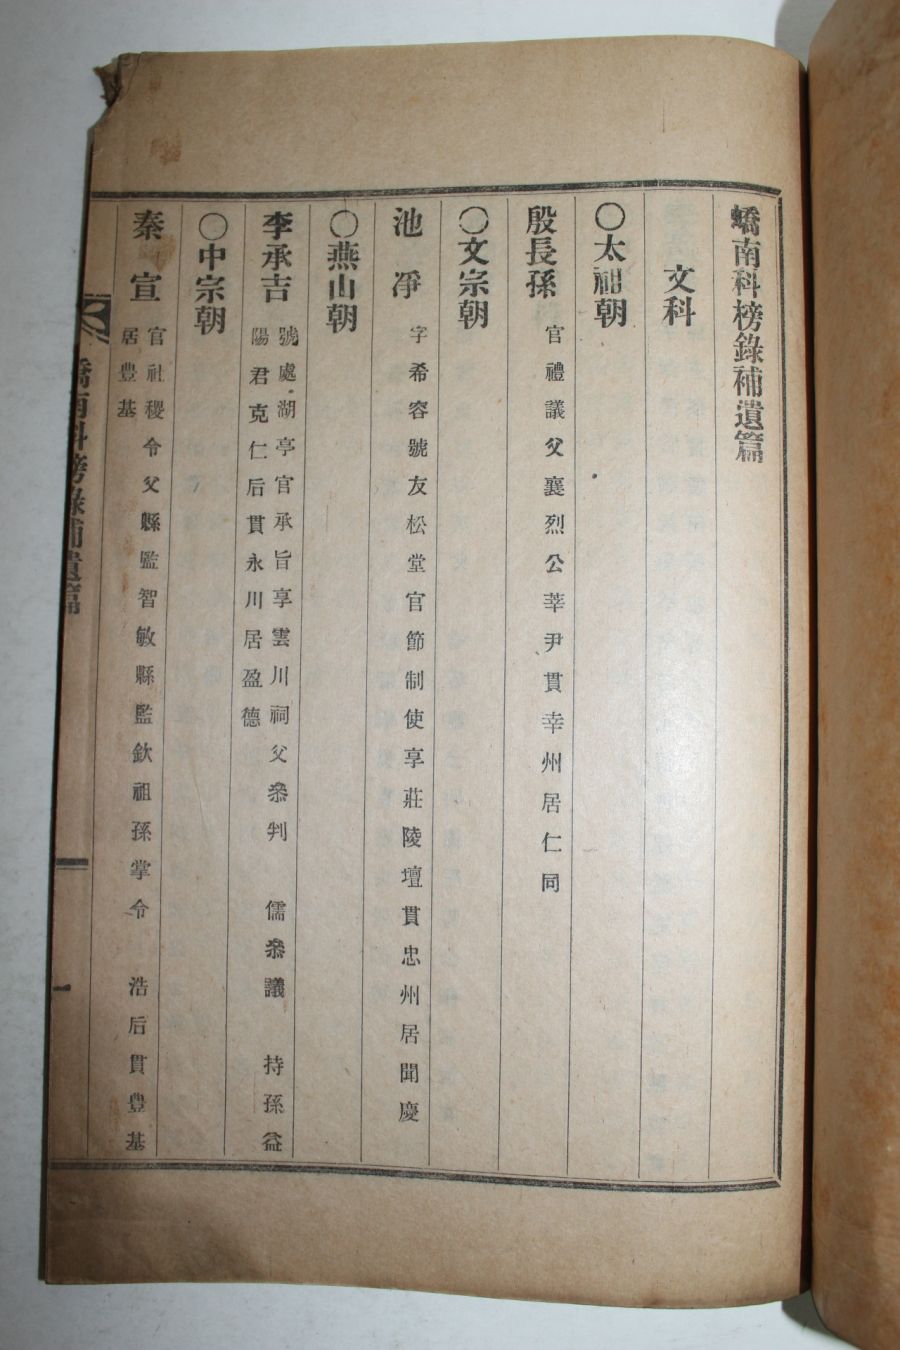 嶠南科榜錄補遺篇
文科
〇太祖朝
殷長孫 官禮議父襄烈公莘尹貫幸州居仁同
〇文宗朝
池淨 字希容號友松堂官節制使享莊陵壇貫忠州居聞慶
〇燕山朝
李承吉 號處湖亭官承旨享雲川祠父叅判 儒叅議 持孫益
陽君克仁后貫永川居盈德
〇中宗朝
秦宣 官社稷令父縣監智敏縣監欽祖孫掌令 浩后貫豊基
居豊基
嶠南科榜錄補遺篇
一